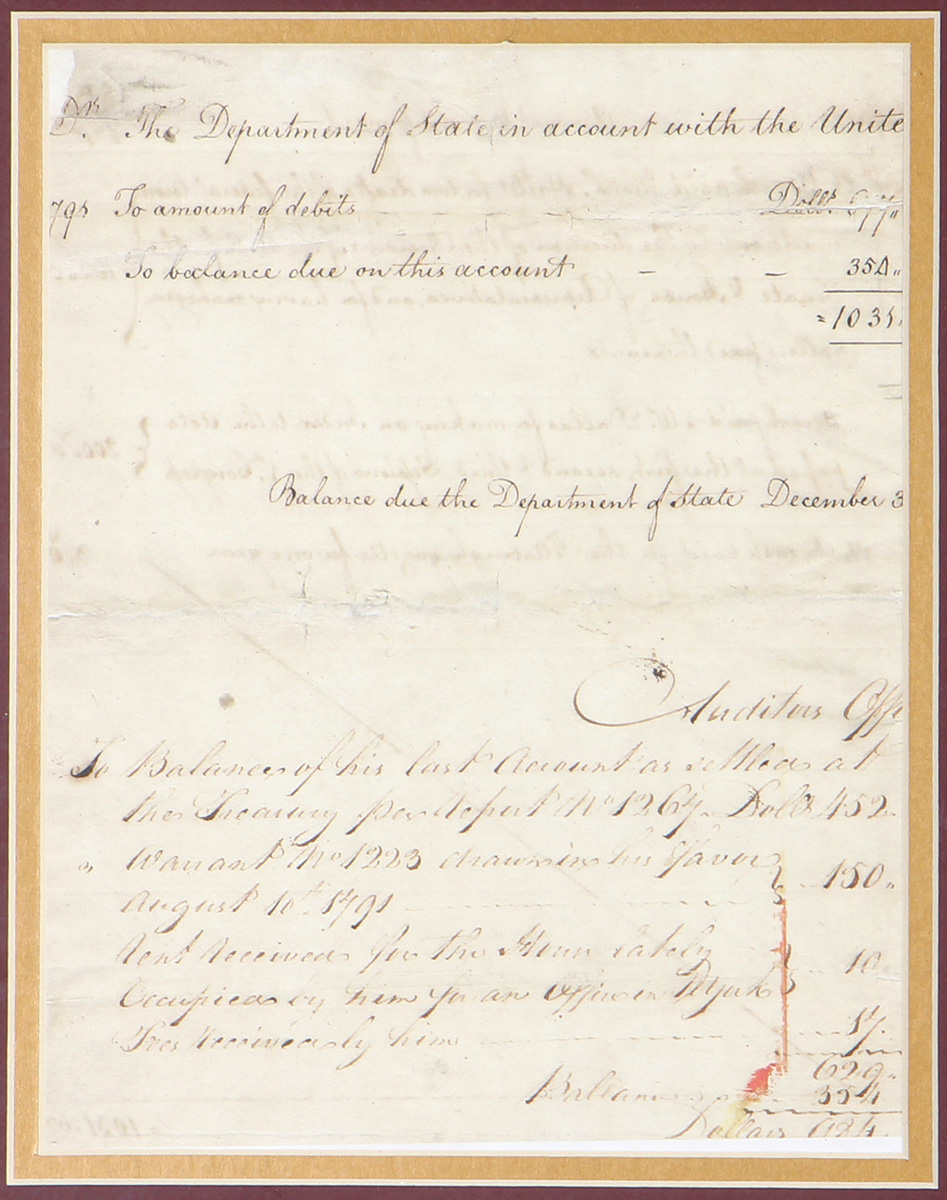 Dr. The Department of State in account with the Unite
791 To amount of debits Dolls 677"
To balance due on this account – – 354"
"1031
Balance due the Department of State December 3
Auditors Offi
To Balance of his last Account as settled at
the Treasury per Report No 1267. Dolls 452
" Warrant No 1223 drawn in his favor
August 10th 1791 150"
Rent Received for the House lately
Occupied by him for an Office in NYork 10
Fees Received by him 17.
629"
Ballance 354
Dollars 984.